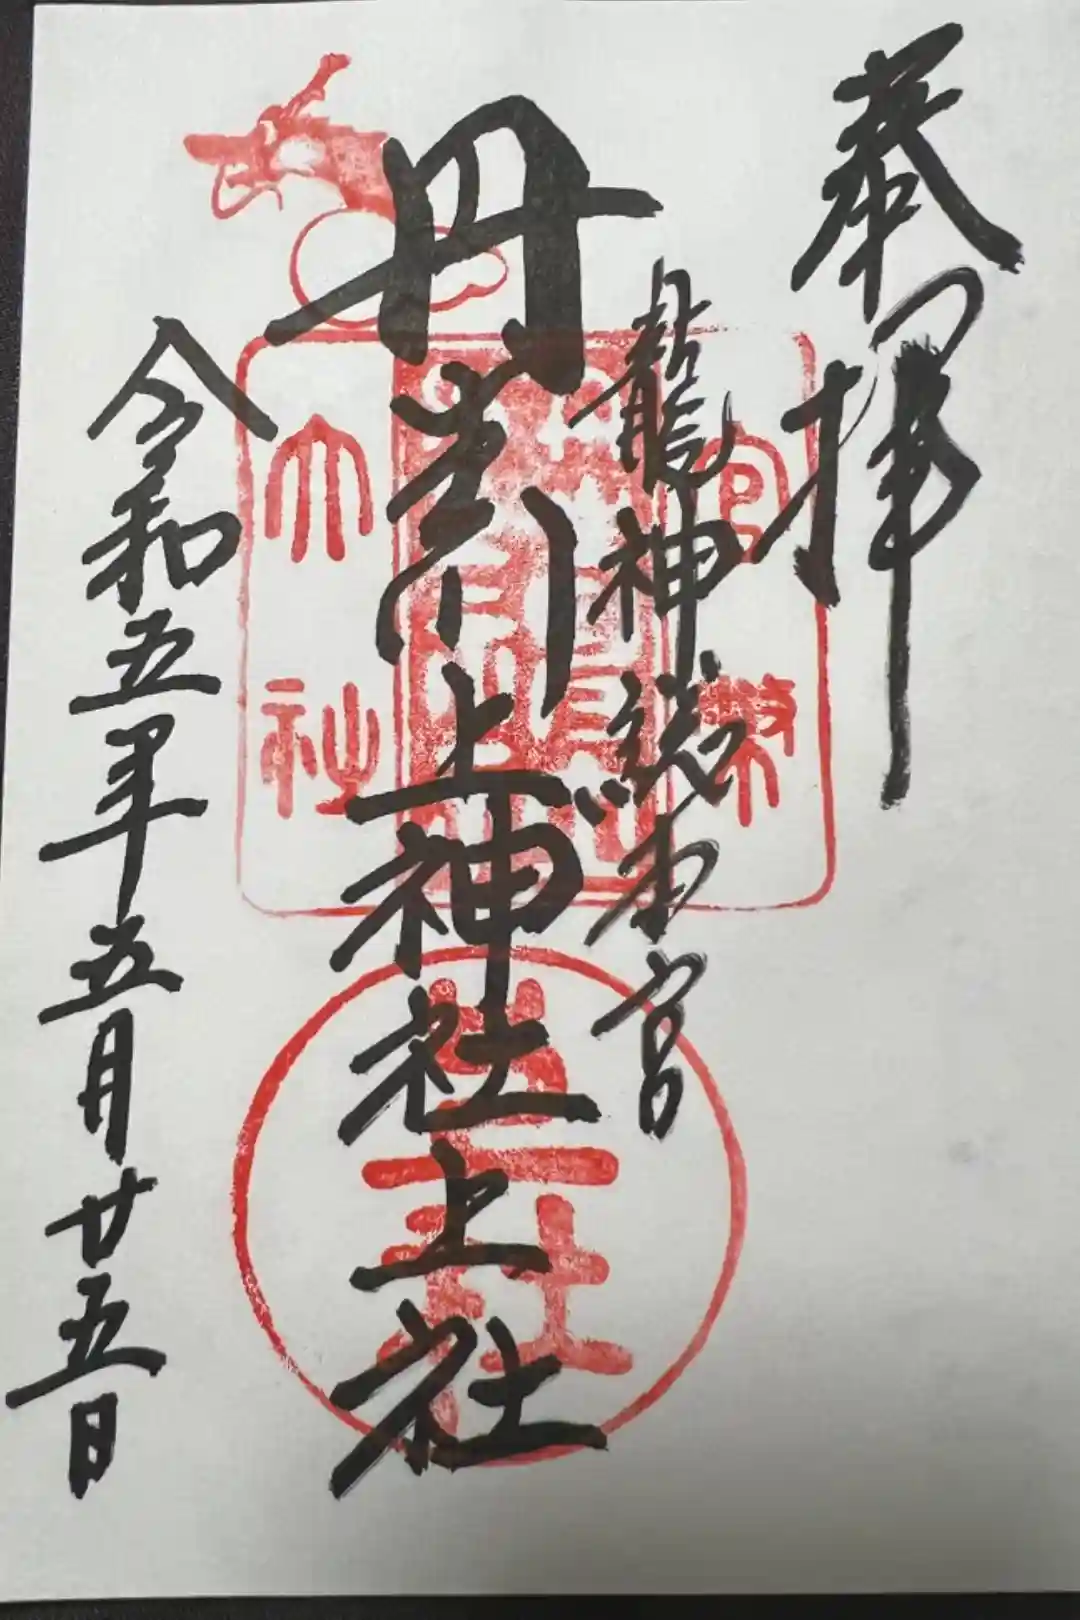 奉拝
龍神総本宮
丹生川上神社上社
令和五年五月廿五日
官幣
大社
上社